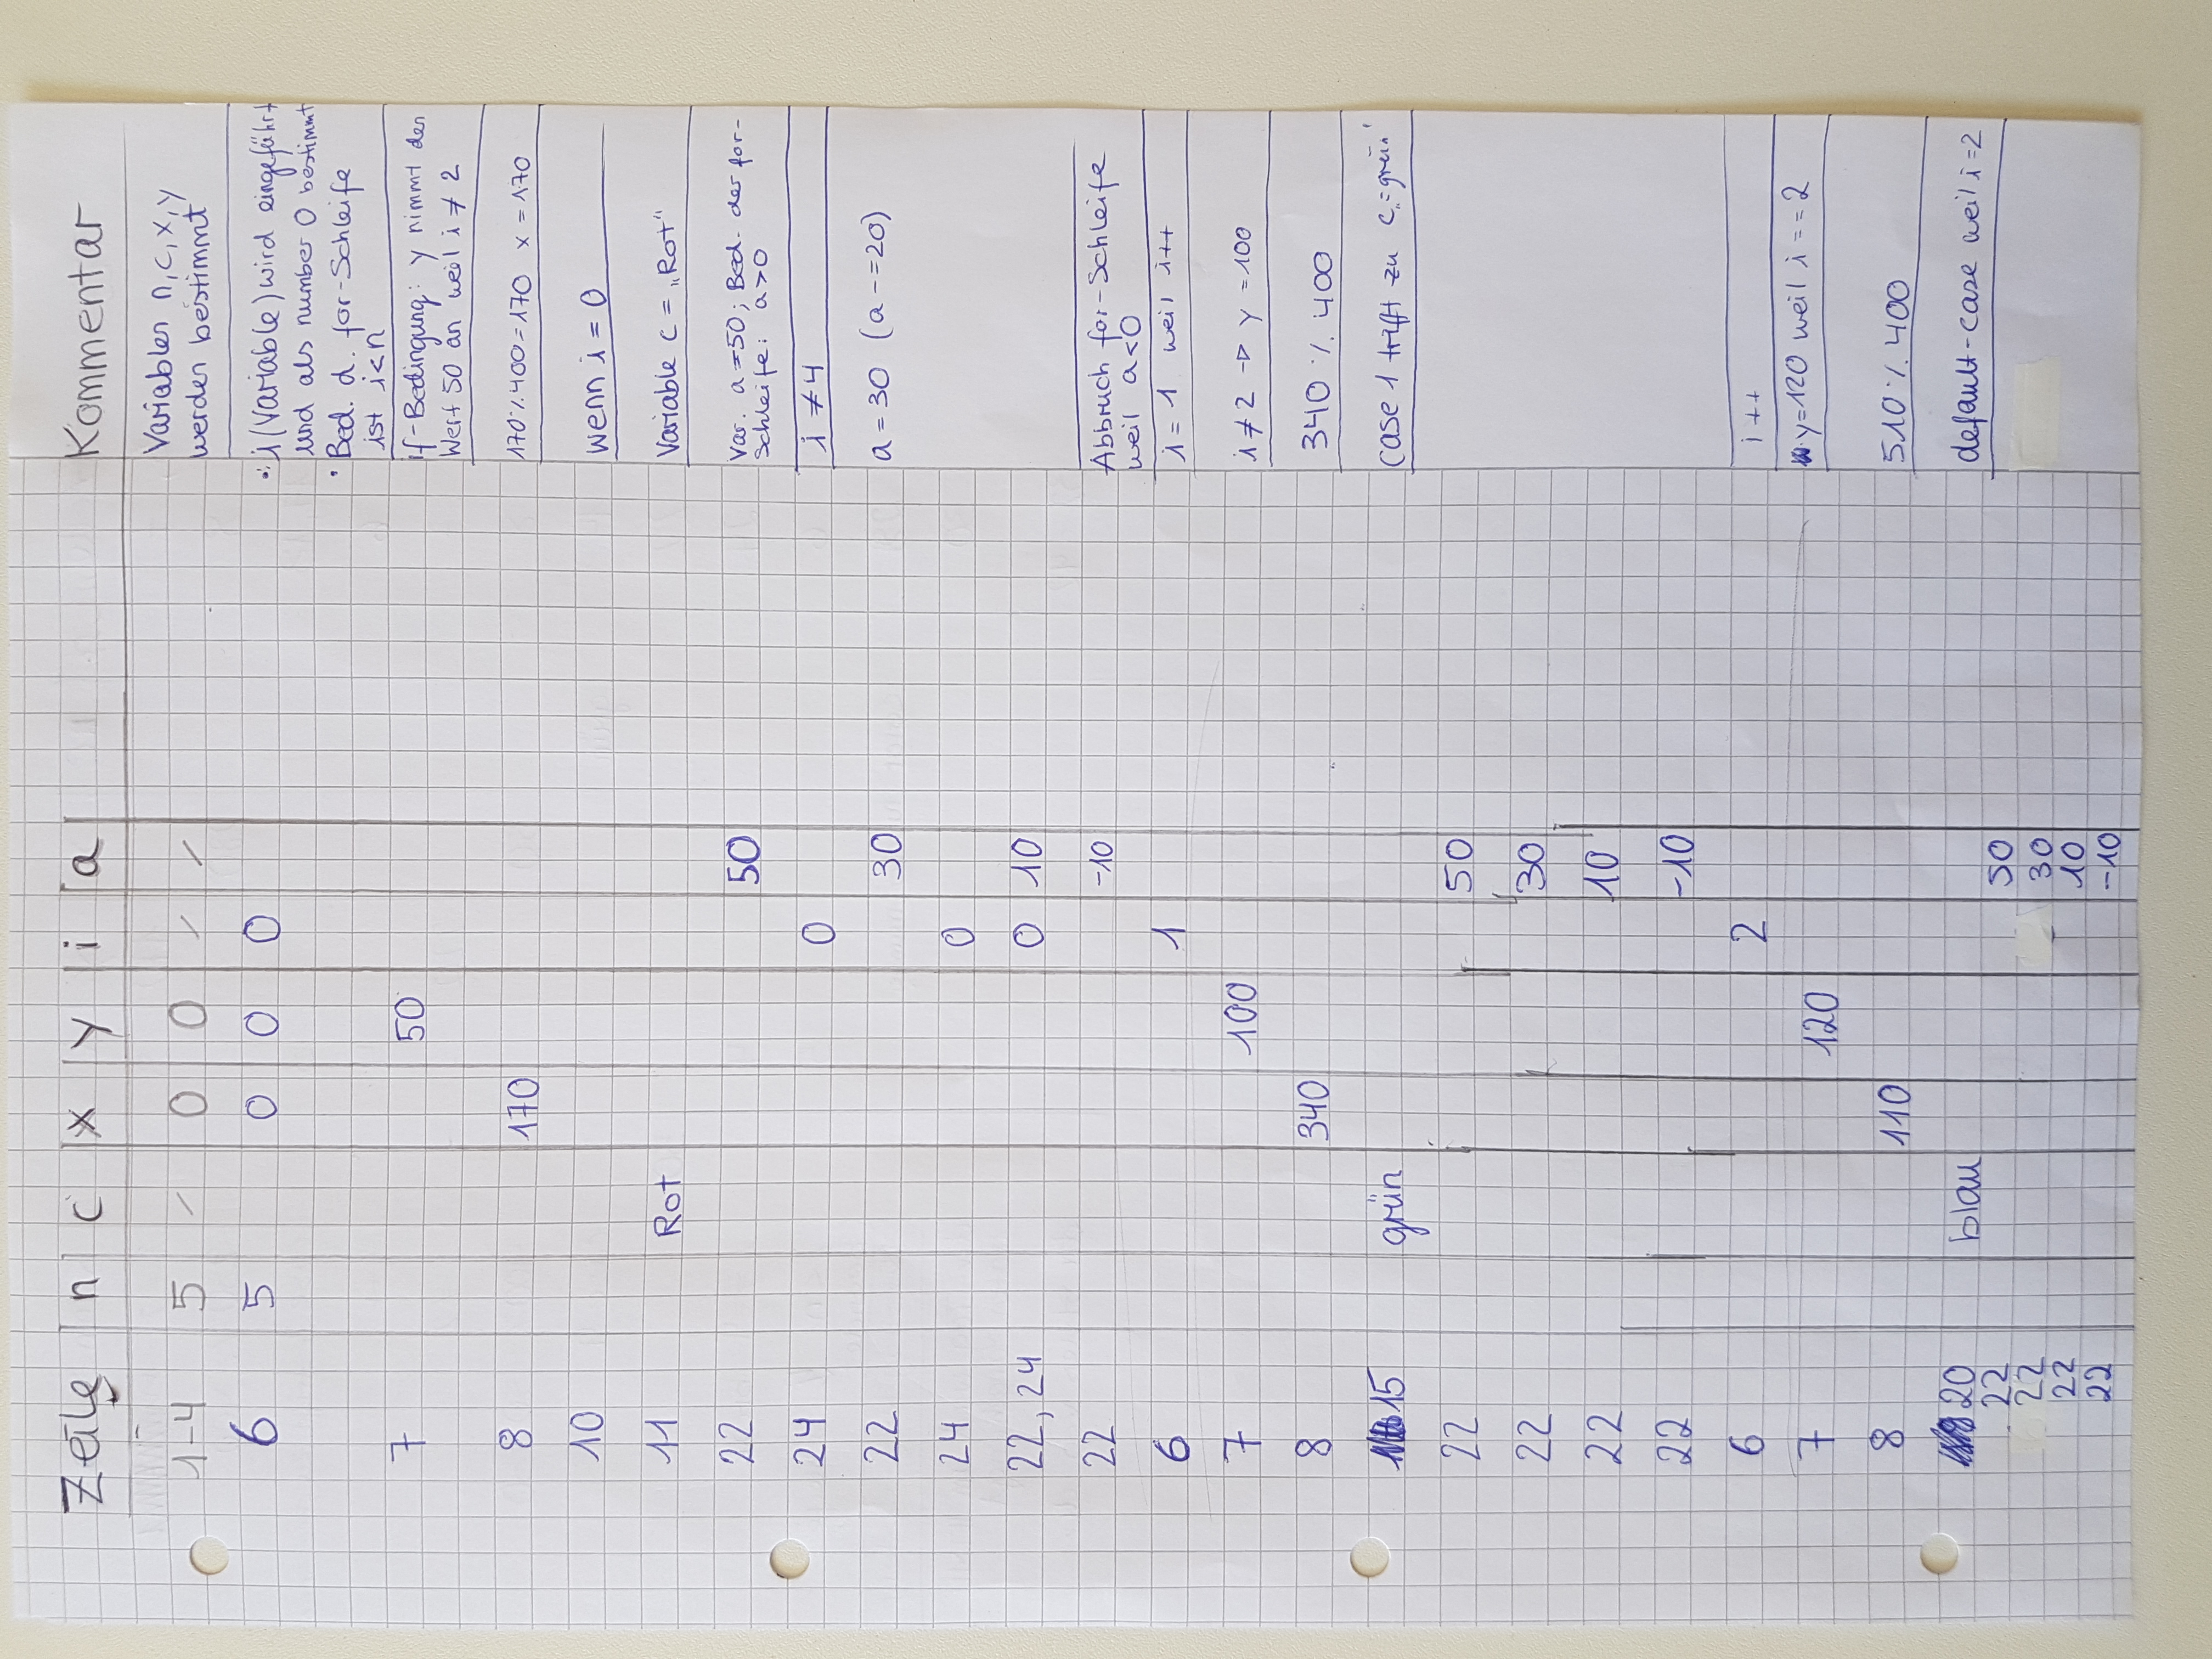 Zeile n c x y i a Kommentar
1-4 5 / 0 0 / / Variablen n, c, x, y
werden bestimmt
6 5 0 0 0 • i (Variable) wird eingeführt
und als number 0 bestimmt
• Bed. d. for-Schleife
ist i<n
7 50 if-Bedingung: y nimmt den
Wert 50 an weil i ≠ 2
8 170 170 % 400 = 170 x = 170
10 wenn i = 0
11 Rot Variable c = „Rot"
22 50 Var. a = 50; Bed. der for-
Schleife: a>0
24 0 i ≠ 4
22 30 a = 30 (a -= 20)
24 0
22, 24 0 10
22 -10 Abbruch for-Schleife
weil a<0
6 1 i = 1 weil i++
7 100 i ≠ 2 -▷ y = 100
8 340 340 % 400
15 grün case 1 trifft zu c „= grün"
22 50
22 30
22 10
22 -10
6 2 i ++
7 120 y=120 weil i == 2
8 110 510 % 400
20 blau default-case weil i = 2
22 50
22 30
22 10
22 -10